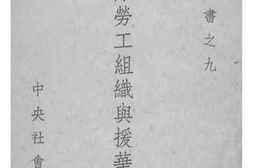 書之九
勞工組織與援華
中央社會